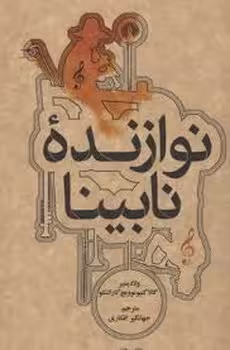 نوازندهٔ
نابینا
ولادیمیر
گالاکتیونوویچ کارالنکو
مترجم
جهانگیر افکاری